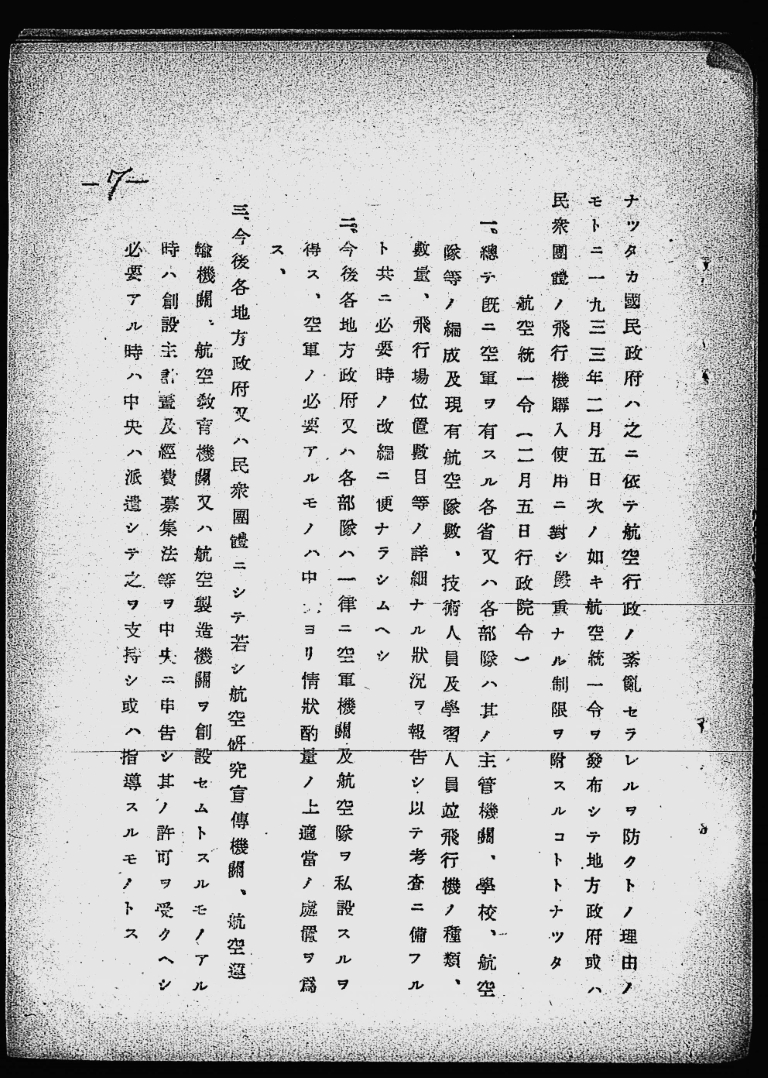 -7-
ナツタカ國民政府ハ之ニ依テ航空行政ノ紊亂セラレルヲ防クトノ理由ノ
モトニ一九三三年二月五日次ノ如キ航空統一令ヲ發布シテ地方政府或ハ
民衆團體ノ飛行機購入使用ニ對シ嚴重ナル制限ヲ附スルコトトナツタ
航空統一令(二月五日行政院令)
一。總テ既ニ空軍ヲ有スル各省又ハ各部隊ハ其ノ主管機關、學校、航空
隊等ノ編成及現有航空隊數、技術人員及學習人員竝飛行機ノ種類、
數量、飛行場位置數目等ノ詳細ナル狀況ヲ報告シ以テ考査ニ備フル
ト共ニ必要時ノ改編ニ便ナラシムヘシ
二。今後各地方政府又ハ各部隊ハ一律ニ空軍機關及航空隊ヲ私設スルヲ
得ス、空軍ノ必要アルモノハ中ヨリ情狀酌量ノ上適當ノ處置ヲ爲
ス、
三、今後各地方政府又ハ民衆團體ニシテ若シ航空硏究宣傳機關、航空運
輸機關、航空敎育機關又ハ航空製造機關ヲ創設セムトスルモノアル
時ハ創設主計畫及經費募集法等ヲ中央ニ申告シ其ノ許可ヲ受クヘシ
必要アル時ハ中央ハ派遣シテ之ヲ支持シ或ハ指導スルモノトス